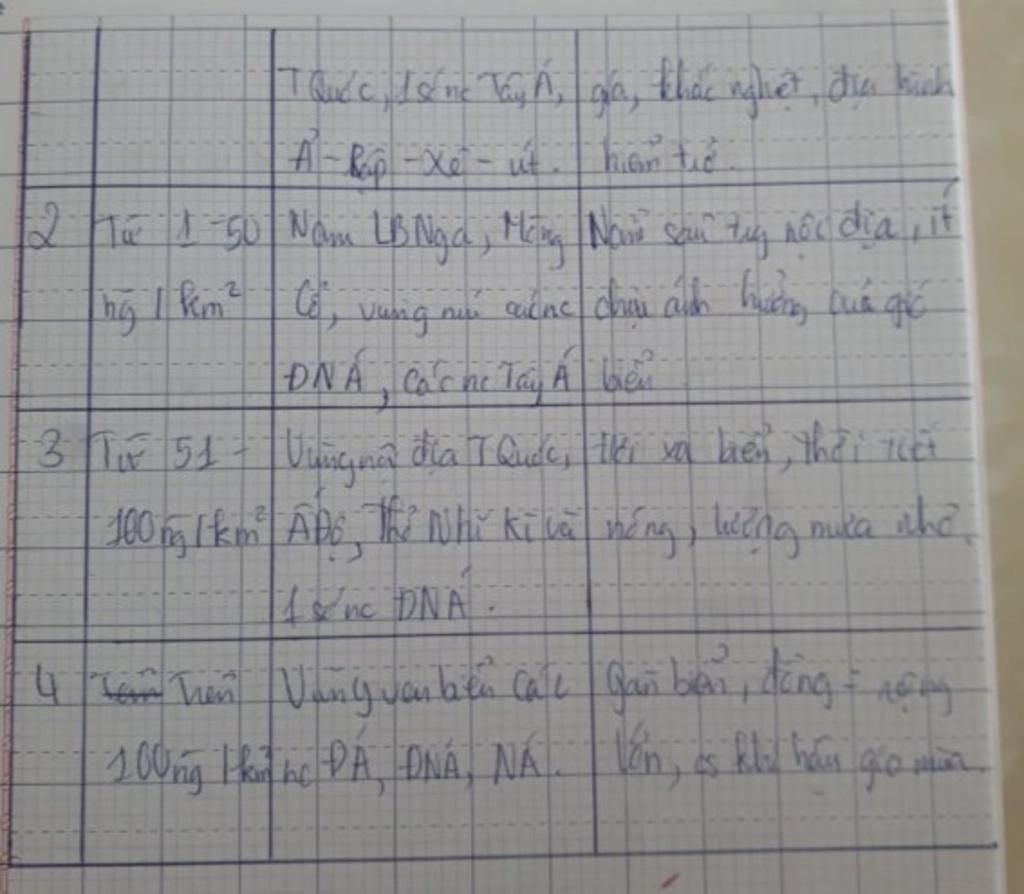 TQuốc, 1 số nc Tây Á, giá, khắc nghiệt, địa hình
Ả-Rập-Xê-út. hiểm trở.
2 Từ 1-50 Nam LBNga, Mông Nằm sâu nội địa, ít
ng/km² Cổ, vùng núi các nc chịu ảnh hưởng của gió
ĐNÁ, Các nc Tây Á biển
3 Từ 51- Vùng nội địa TQuốc, xa biển, thời tiết
100ng/km² Ấ Độ, Thổ Nhĩ Kì và nóng, lượng mưa nhỏ.
1 số nc ĐNÁ.
4 Trên Vùng ven biển các Gần biển, đồng = rộng
100ng/km² nc ĐÁ, ĐNÁ, NÁ. lớn, có khí hậu gió mùa.